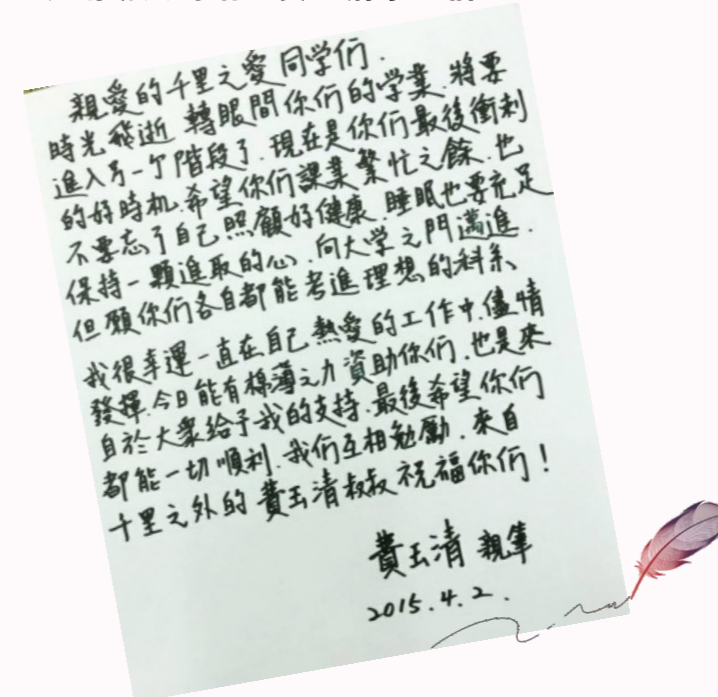 親愛的千里之愛同学们.
時光飛逝 轉眼間你们的学業 將要
進入另一个階段了.現在是你们最後衝刺
的好時机.希望你们課業繁忙之餘.也
不要忘了自己照顧好健康.睡眠也要充足
保持一顆進取的心.向大学之門邁進.
但願你们各自都能考進理想的科系、
我很幸運一直在自己熱愛的工作中.儘情
發揮.今日能有棉薄之力資助你们.也是來
自於大衆給予我的支持.最後希望你们
都能一切順利.我们互相勉勵.來自
千里之外的費玉清叔叔祝福你们!
費玉清 親筆
2015.4.2.